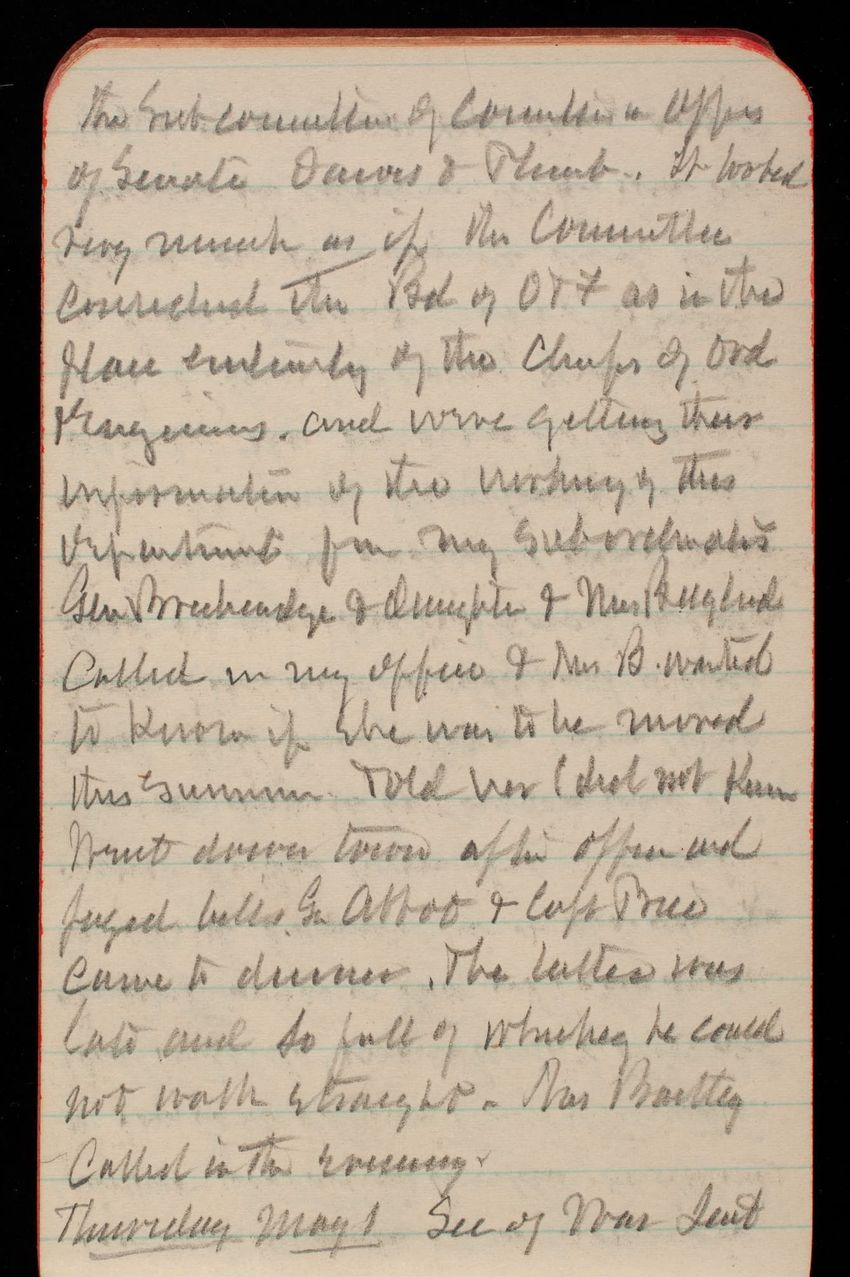 the Subcommittee of Committee on Appns
of Senate Dawes & Plumb. It looked
very much as if the Committee
considered the Bd of O & F as in the
place entirely of the Chiefs of Ord
& Engineers. and were getting their
information of the working of this
Department from my Subordinates
Gen Breckenridge & daughter & Mrs
Called in my office & Mrs B. wanted
to Know if she was to be moved
this Summer. Told her I did not Know
Went down town after office and
payed bills. Gn Abbot & Capt Price
Came to dinner. The latter was
late and so full of whiskey he could
not walk straight. Mrs
Called in the evening.
Thursday May 1 Sec of War Sent